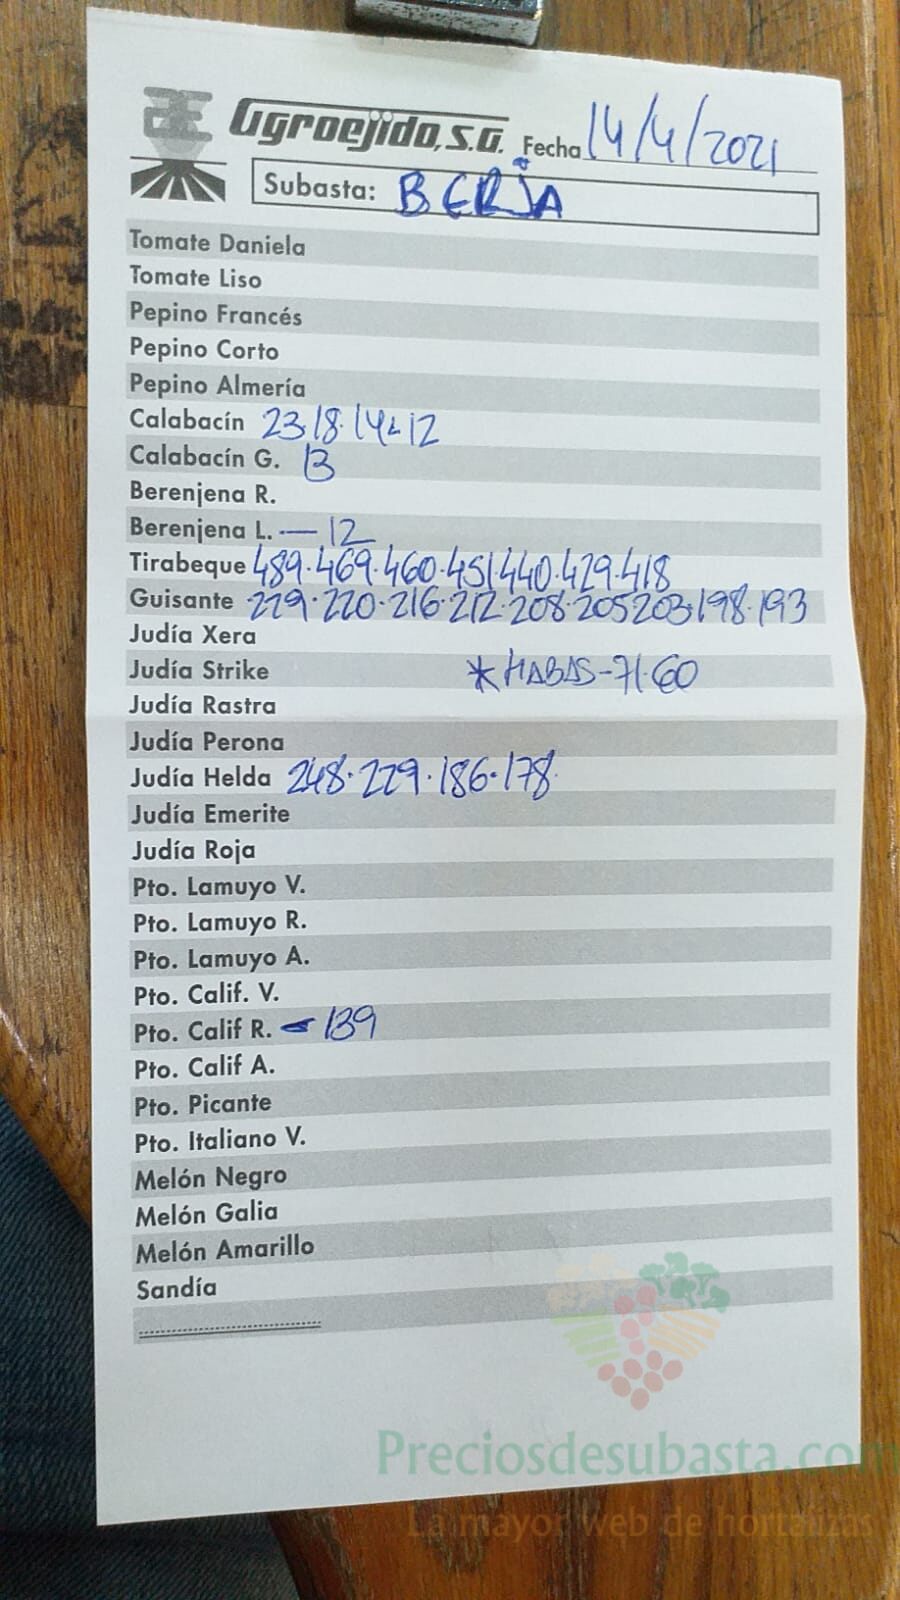 Agroejido, S.A. Fecha 14/4/2021
Subasta: BERJA
Tomate Daniela
Tomate Liso
Pepino Francés
Pepino Corto
Pepino Almería
Calabacín 23.18.14.12
Calabacín G. 13
Berenjena R.
Berenjena L. — 12
Tirabeque 489.469.460.451.440.429.418
Guisante 229.220.216.212.208.205.203.198.193
Judía Xera
Judía Strike * HABAS-71.60
Judía Rastra
Judía Perona
Judía Helda 248.229.186.178
Judía Emerite
Judía Roja
Pto. Lamuyo V.
Pto. Lamuyo R.
Pto. Lamuyo A.
Pto. Calif. V.
Pto. Calif R. - 139
Pto. Calif A.
Pto. Picante
Pto. Italiano V.
Melón Negro
Melón Galia
Melón Amarillo
Sandía
Preciosdesubasta.com
La mayor web de hortalizas